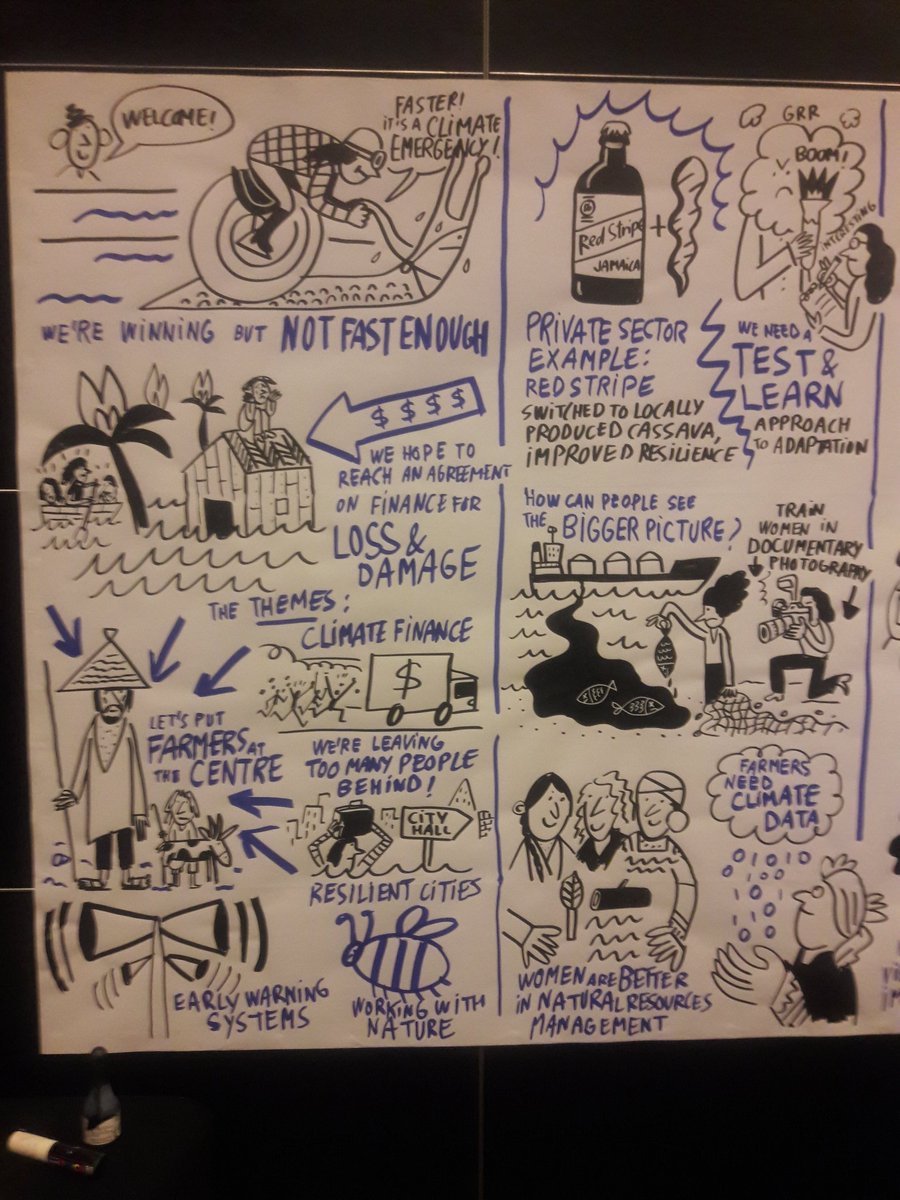 WELCOME!
FASTER!
IT'S A CLIMATE
EMERGENCY!
WE'RE WINNING BUT NOT FAST ENOUGH
$ $ $ $
WE HOPE TO
REACH AN AGREEMENT
ON FINANCE FOR
LOSS &
DAMAGE
THE THEMES:
CLIMATE FINANCE
$
LET'S PUT
FARMERS AT
THE CENTRE
WE'RE LEAVING
TOO MANY PEOPLE
BEHIND!
CITY
HALL
RESILIENT CITIES
EARLY WARNING
SYSTEMS
WORKING WITH
NATURE
Red Stripe
JAMAICA
+
PRIVATE SECTOR
EXAMPLE:
RED STRIPE
SWITCHED TO LOCALLY
PRODUCED CASSAVA,
IMPROVED RESILIENCE
GRR
BOOM!
INTERESTING
WE NEED A
TEST &
LEARN
APPROACH
TO ADAPTATION
HOW CAN PEOPLE SEE
THE BIGGER PICTURE?
TRAIN
WOMEN IN
DOCUMENTARY
PHOTOGRAPHY
WOMEN ARE BETTER
IN NATURAL RESOURCES
MANAGEMENT
FARMERS
NEED
CLIMATE
DATA